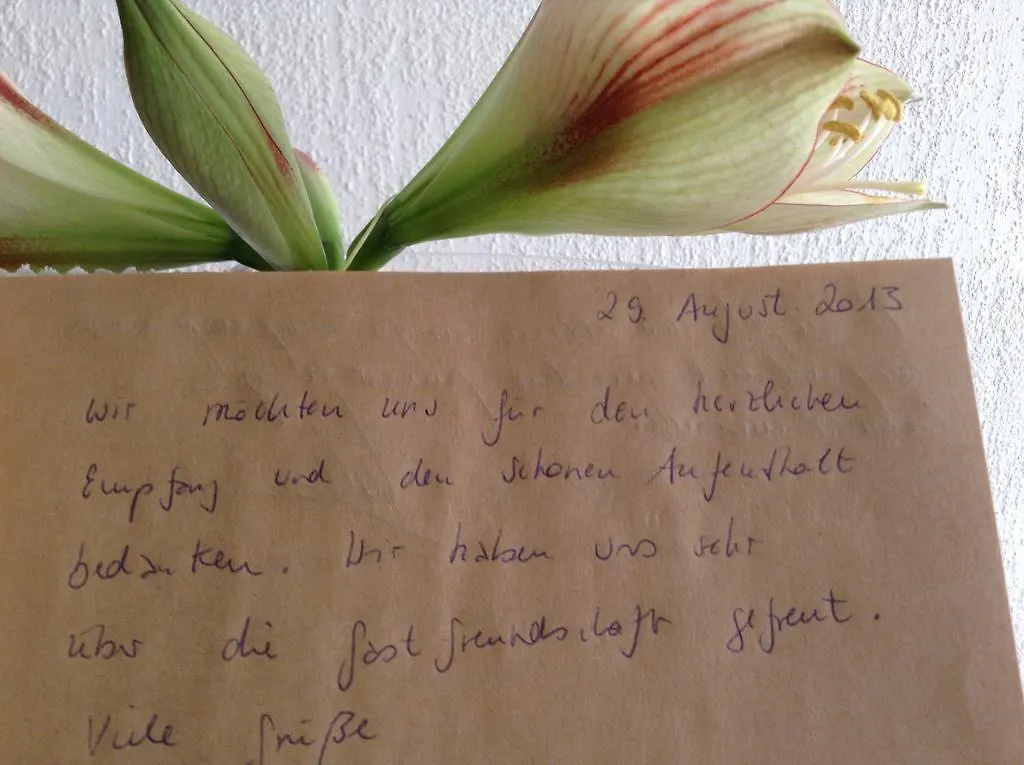 29. August. 2013
Wir möchten uns für den herzlichen
Empfang und den schönen Aufenthalt
bedanken. Wir haben uns sehr
über die Gastfreundschaft gefreut.
Viele Grüße